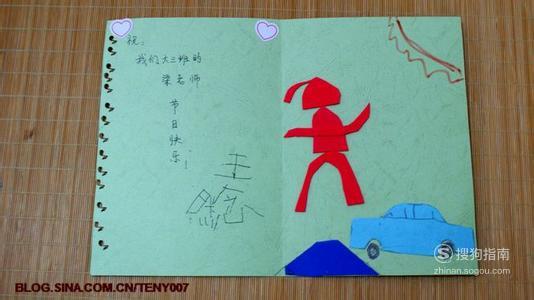 祝：
我们大三班的
梁老师
节
日
快
乐！
王
搜狗指南
zhinan.sogou.com
BLOG.SINA.COM.CN/TENY007